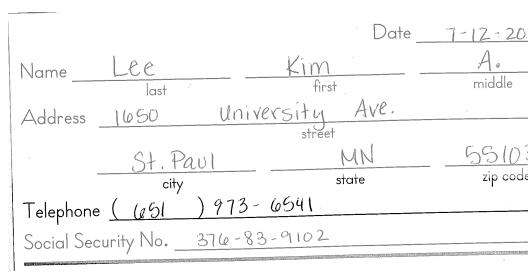 Date 7-12-20
Name Lee Kim A.
last first middle
Address 1650 University Ave.
street
St. Paul MN 55103
city state zip code
Telephone (651) 973-6541
Social Security No. 376-83-9102